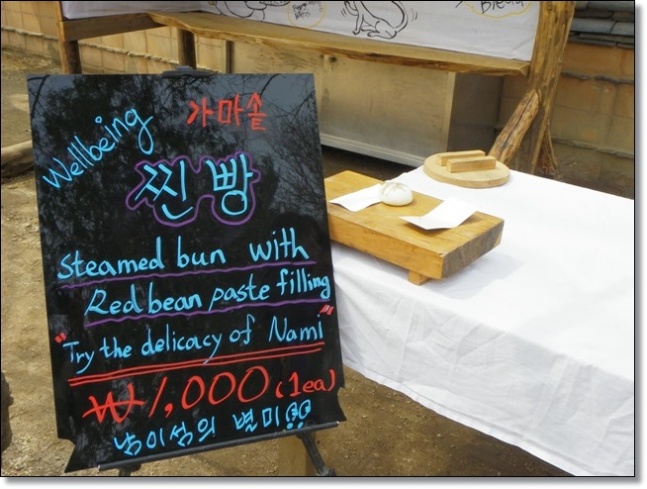 Wellbeing 가마솥
찐빵
Steamed bun with
Red bean paste filling
"Try the delicacy of Nami"
₩1,000 (1ea)
남이섬의 별미!!